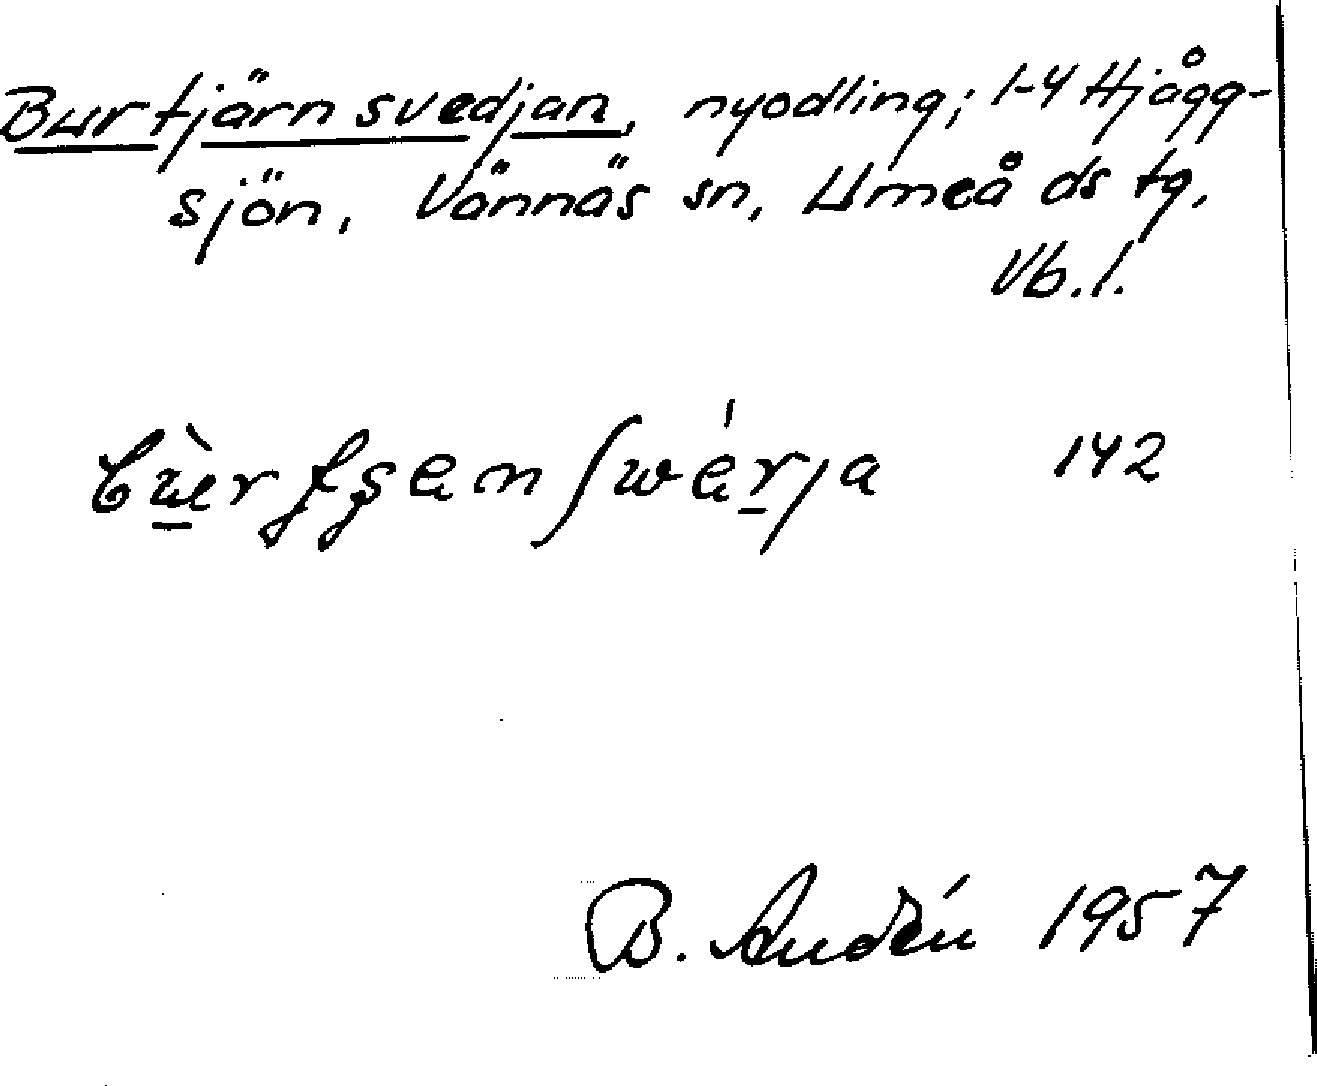 Burtjärnsvedjan, nyodling; 1-4 Hjågg-
sjön, Vännäs sn, Umeå ds tg.
Vb.l.
142
B. Andén 1957